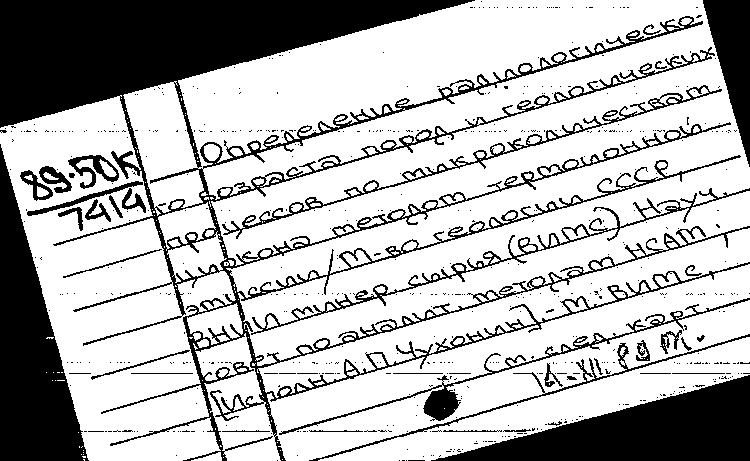 89-50К
7414
Определение радиологическо-
го возраста пород и геологических
процессов по микроколичествам
циркона методом термоионной
эмиссии / М-во геологии СССР,
ВНИИ минер. сырья (ВИМС) Науч.
совет по аналит. методам НСАМ;
[Исполн. А.П. Чухонин]. - М.: ВИМС,
См. след. карт.
14-XII.89 М.